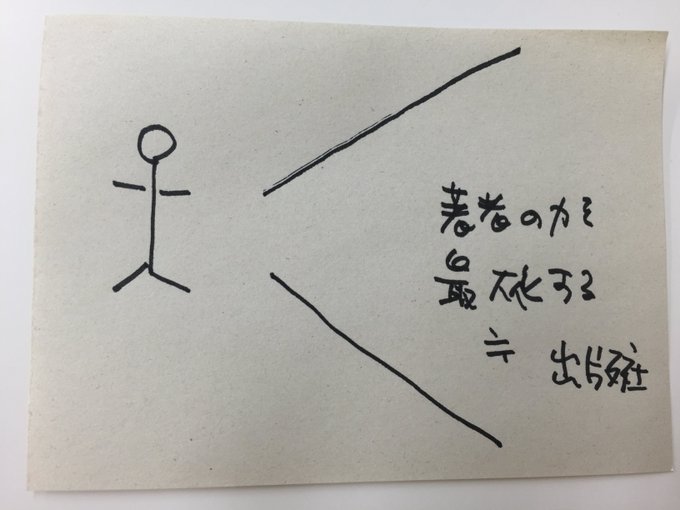 著者の力を
最大化する
≒ 出版社